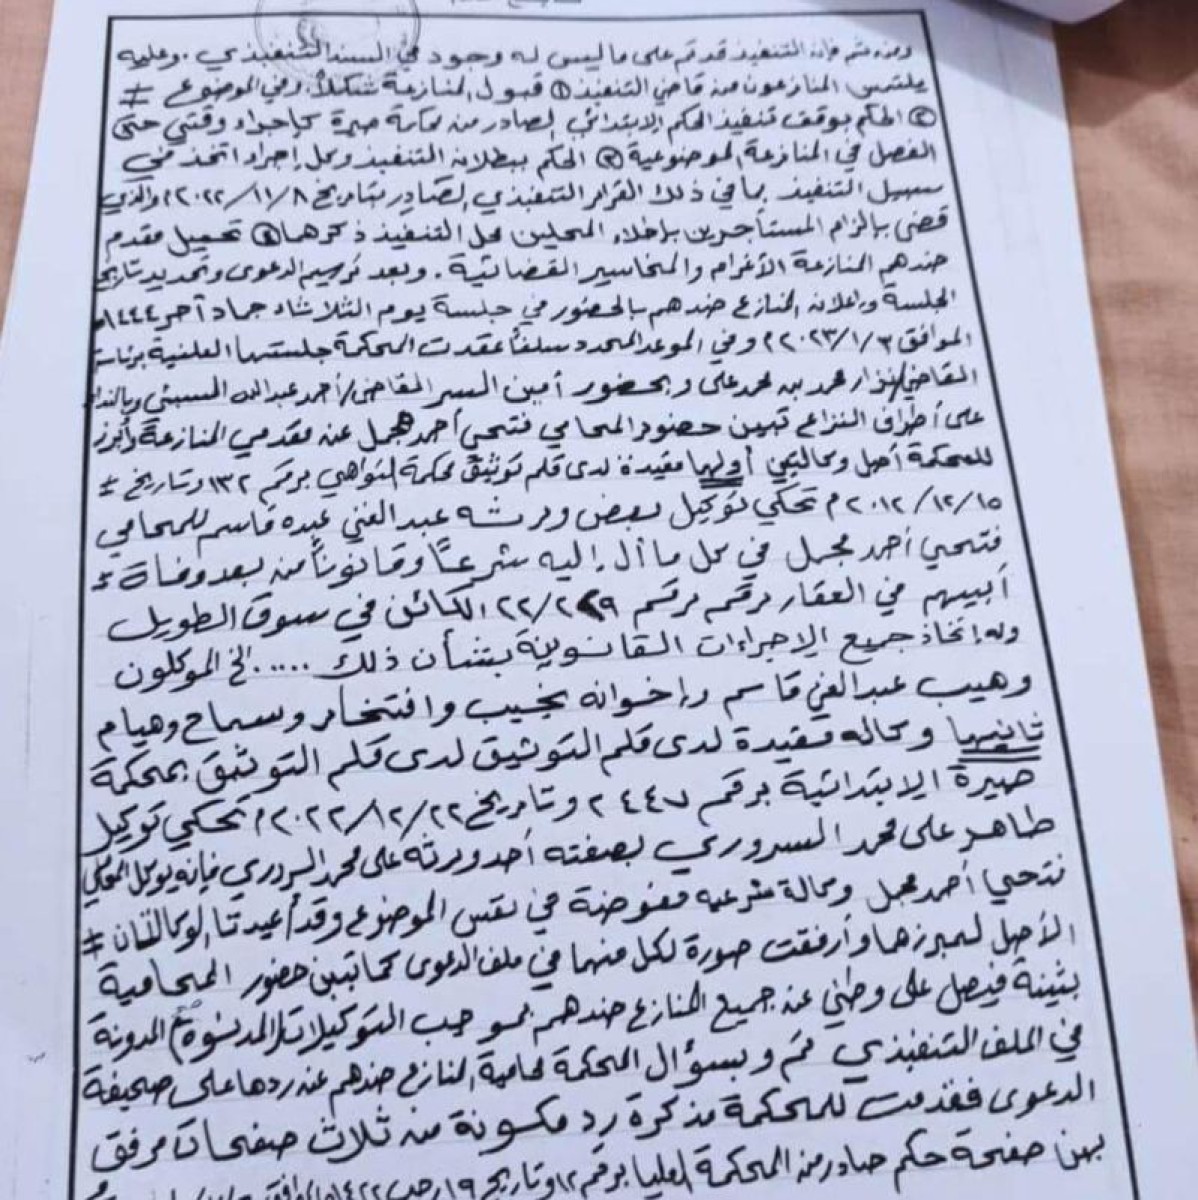 ومن ثم فإن التنفيذ قد تم على ما ليس له وجود في السند التنفيذي . وعليه
يلتمس المنازعون من قاضي التنفيذ ① قبول المنازعة شكلاً وفي الموضوع #
② الحكم بوقف تنفيذ الحكم الابتدائي الصادر من محكمة صيرة كإجراء وقتي حتى
الفصل في المنازعة الموضوعية ③ الحكم ببطلان التنفيذ وكل إجراء اتخذ في
سبيل التنفيذ بما في ذلك القرار التنفيذي الصادر بتاريخ ٢٠٢٢/١١/٨م والذي
قضى بإلزام المستأجرين بإخلاء المحلين محل التنفيذ ذكرهما ④ تحميل مقدم
ضدهم المنازعة الأغرام والمخاسير القضائية . وبعد ترسيم الدعوى وتحديد تاريخ
الجلسة وإعلان المنازع ضدهم بالحضور في جلسة يوم الثلاثاء جماد آخر ١٤٤٤هـ
الموافق ٢٠٢٣/١/٣م وفي الموعد المحدد سلفاً عقدت المحكمة جلستها العلنية برئاسة
القاضي/نزار محمد بن محمد علي وبحضور أمين السر القاضي/أحمد عبدالله المسبئي وبالنداء
على أطراف النزاع تبين حضور المحامي فتحي أحمد مجمل عن مقدمي المنازعة وأبرز
للمحكمة أصل وكالتين أولهما مقيدة لدى قلم توثيق محكمة التواهي برقم ١٣٢ وتاريخ #
٢٠١٢/١٢/١٥م تحكي توكيل بعض ورثه عبدالغني عبده قاسم للمحامي
فتحي أحمد مجمل في كل ما أل إليه شرعاً وقانوناً من بعد وفاة
أبيهم في العقار برقم برقم ٢٢/٢٢٩ الكائن في سوق الطويل
وله إتخاذ جميع الاجراءات القانونية بشأن ذلك ..... الخ الموكلون
وهيب عبدالغني قاسم وإخوانه نجيب وافتخار وسماح وهيام
ثانيها وكاله مقيدة لدى قلم التوثيق لدى قلم التوثيق بمحكمة
صيرة الابتدائية برقم ٢٤٤٧ وتاريخ ٢٠٢٢/١٢/٢٢م تحكي توكيل
طاهر على محمد السروري بصفته أحد ورثة على محمد السروري فإنه يوكل المحامي
فتحي أحمد مجمل وكالة شرعيه مفوضة في نفس الموضوع وقد أعيدتا الوكالتان #
الأصل لمبرزها وأرفقت صورة لكل منهما في ملف الدعوى كما تبين حضور المحامية
بثينة فيصل على وطني عن جميع المنازع ضدهم بموجب التوكيلات المدونة
في الملف التنفيذي ثم وبسؤال المحكمة محامية المنازع ضدهم عن ردها على صحيفة
الدعوى فقدمت للمحكمة مذكرة رد مكونة من ثلاث صفحات مرفق
بهن صفحة حكم صادر من المحكمة العليا برقم ١٢ وتاريخ ١٩ رجب ١٤٢٢هـ